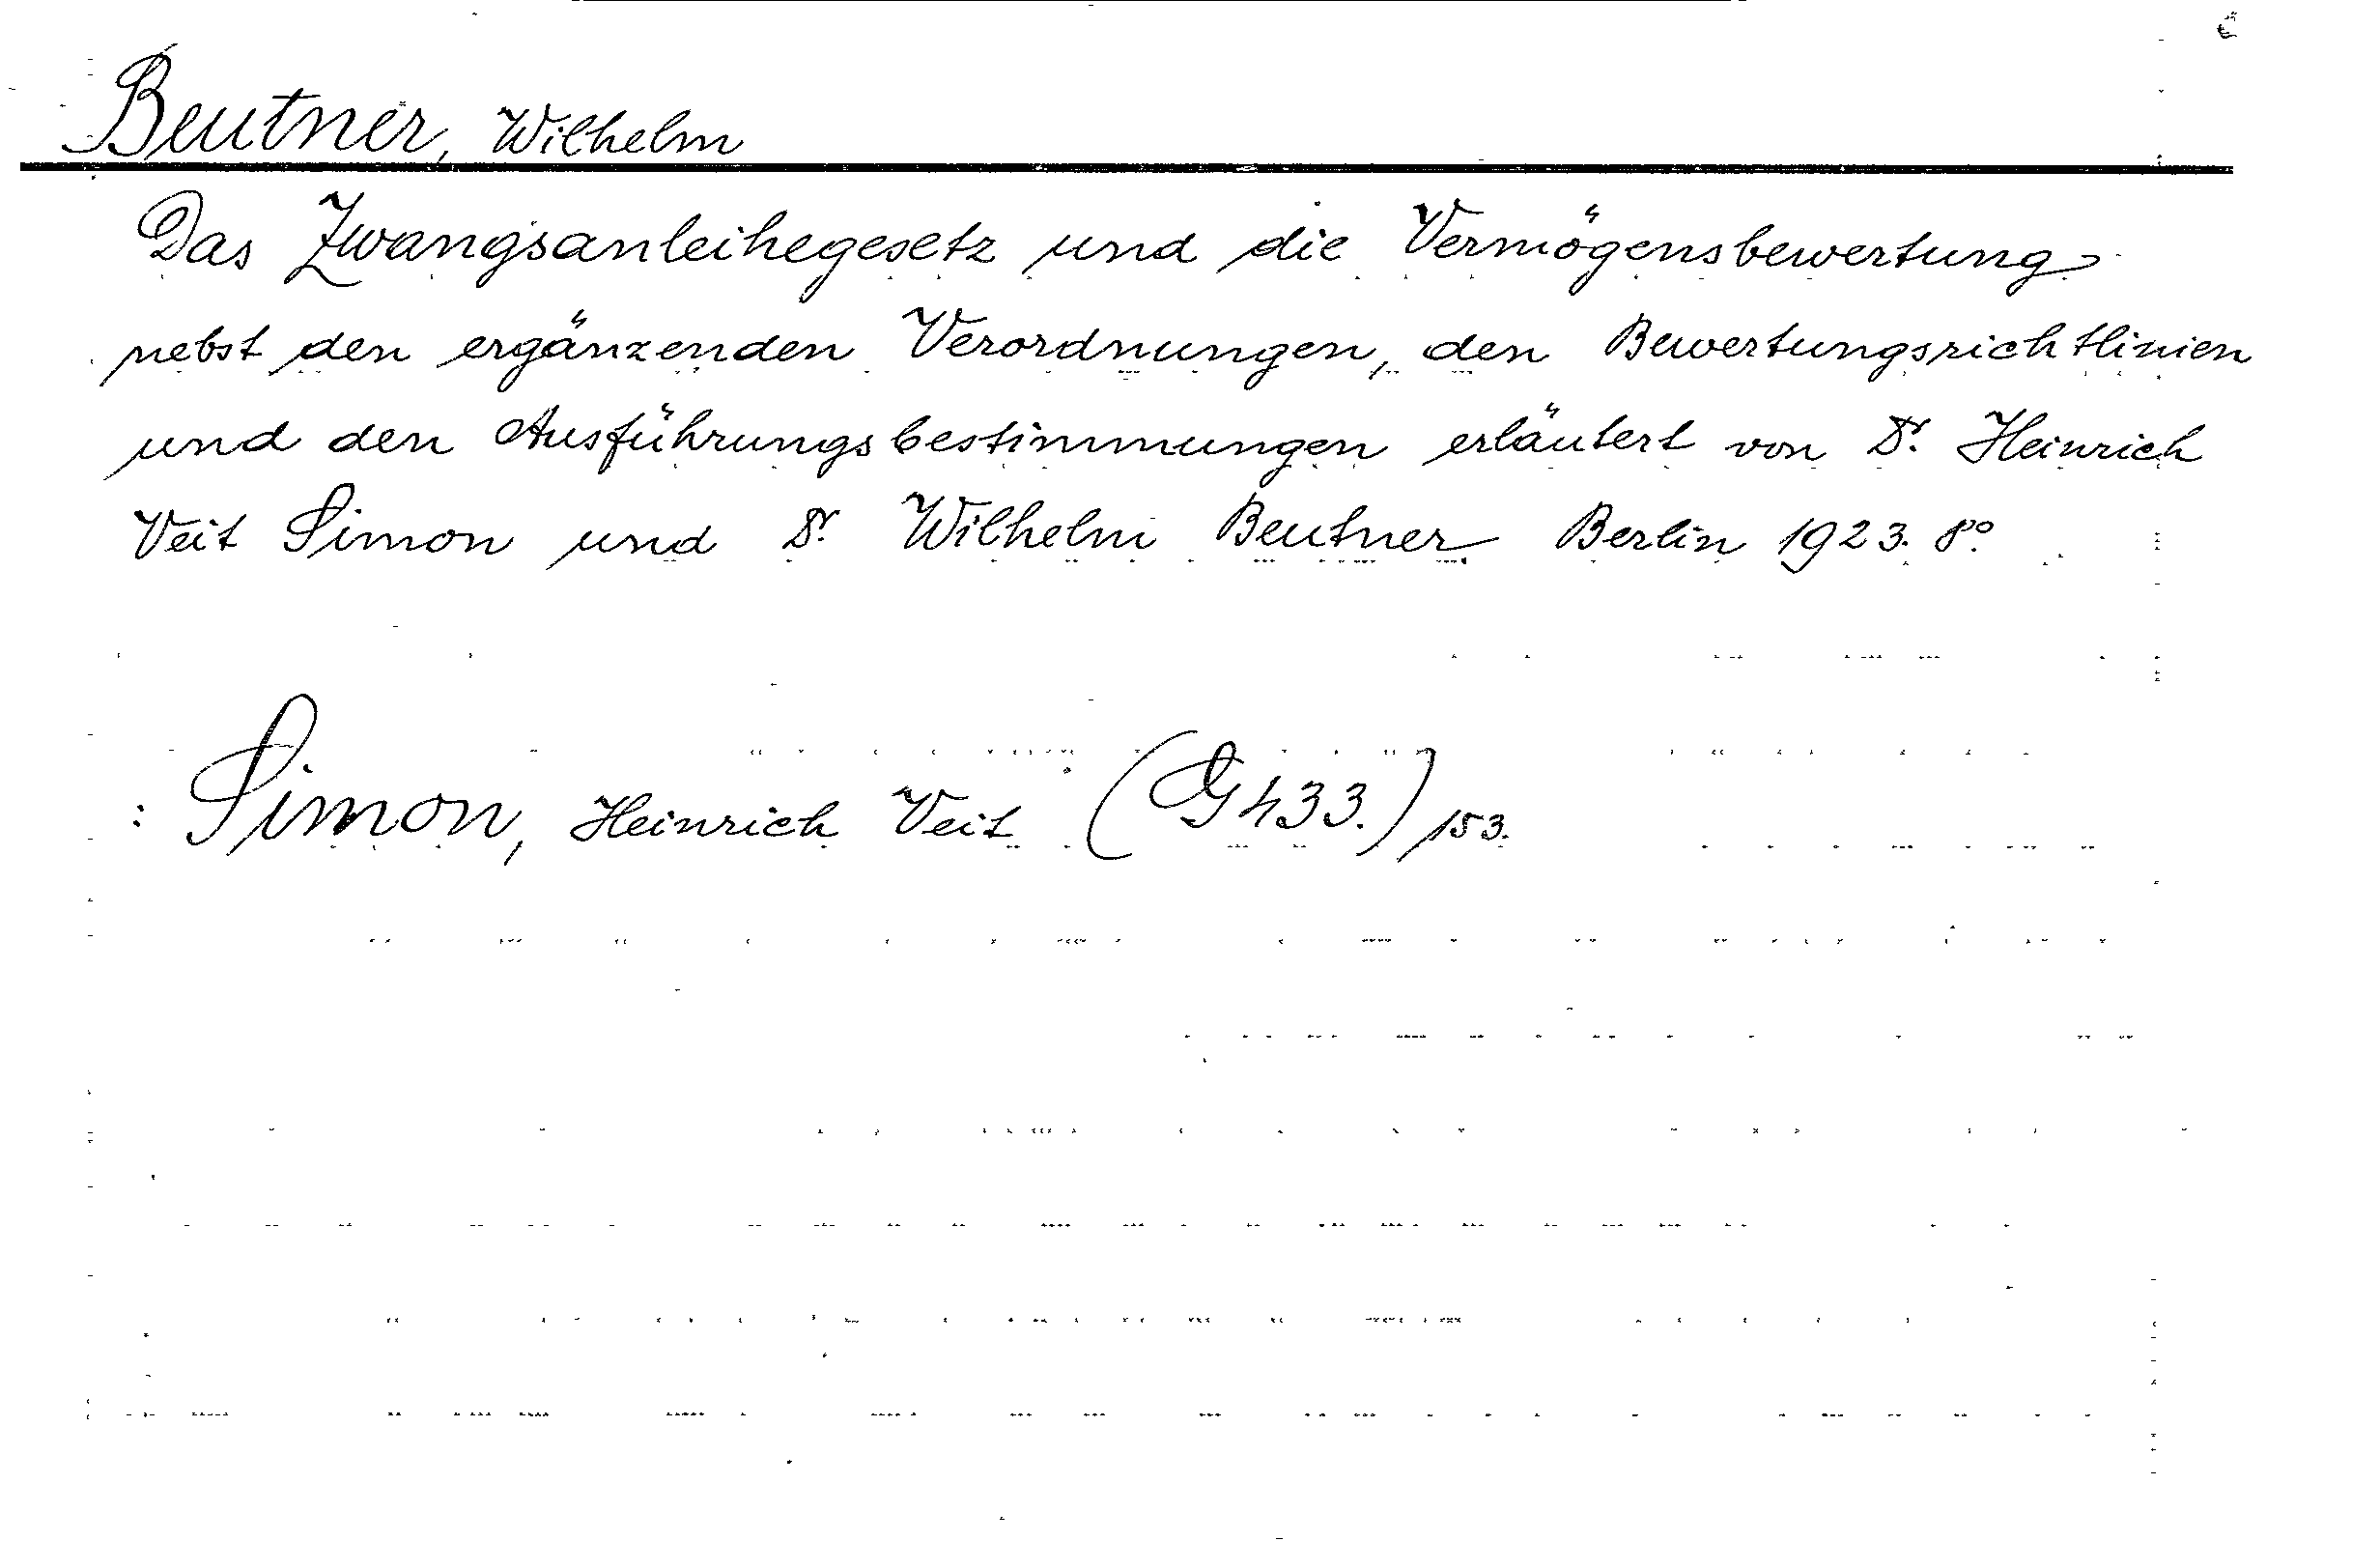 Beutner, Wilhelm
Das Zwangsanleihegesetz und die Vermögensbewertung
nebst den ergänzenden Verordnungen, den Bewertungsrichtlinien
und den Ausführungsbestimmungen erläutert von Dr. Heinrich
Veit Simon und Dr. Wilhelm Beutner Berlin 1923. 8°.
: Simon, Heinrich Veit (G 433.) 153.